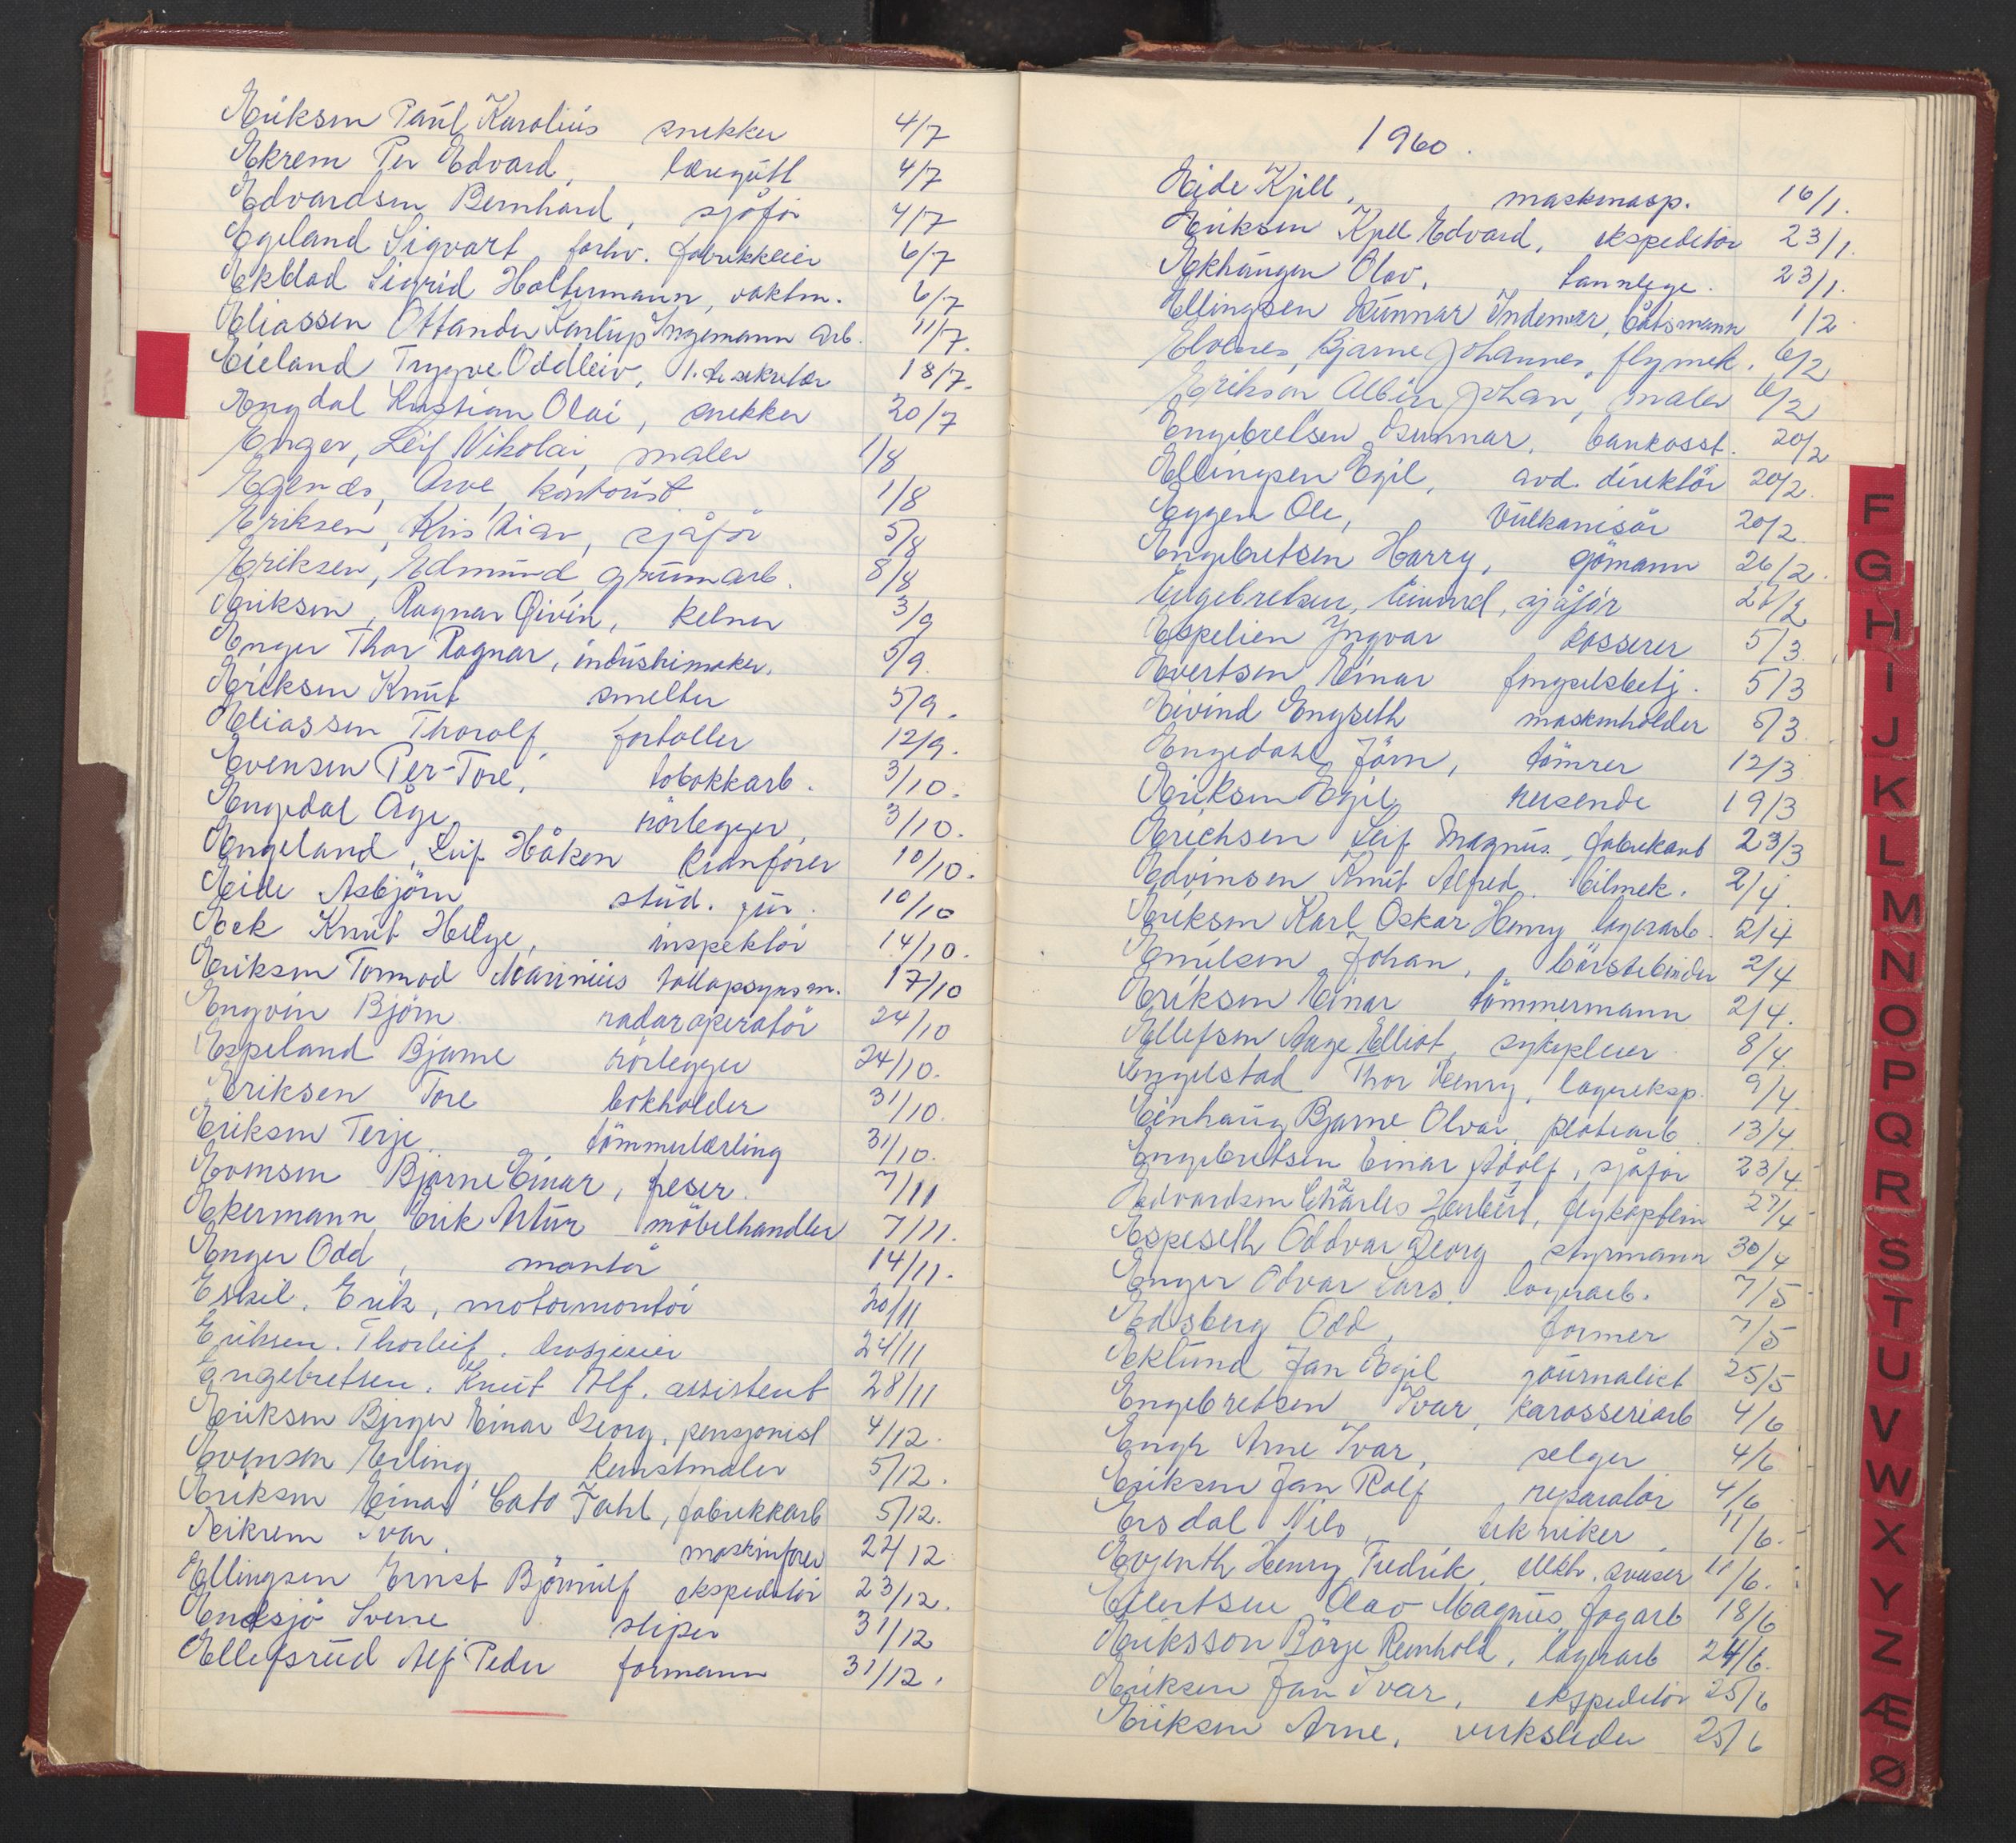 Eriksen Paul Karolius snekker 4/7
Ekrem Per Edvard, læregutt 4/7
Edvardsen Bernhard, sjåför 4/7
Egeland Sigvart forhv. fabrikkeier 6/7
Ekblad Sigrid Holtermann, vaktm. 6/7
Eliassen Ottander Kentup Ingemann arb. 11/7.
Eieland Trygve Oddleiv, 1.ste sekretær 18/7.
Engdal Kristian Olai, snekker 20/7
Enger, Leif Nikolai, maler 1/8
Egenæs, Arve, kontorist 1/8
Eriksen, Kristian, sjåför 5/8
Eriksen, Edmund, grunnarb. 8/8
Eriksen, Ragnar Øivin, kelner 3/9
Enger Thor Ragnar, industrimaker. 5/9.
Eriksen Knut smelter 5/9.
Eliassen Thorolf, fortoller 12/9.
Evensen Per-Tore, tobakkarb. 3/10.
Engedal Åge, rörlegger, 3/10.
Engeland, Leif Håken kranförer 10/10.
Eide Asbjörn, stud. jur. 10/10
Eek Knut Helge, inspektör 14/10.
Eriksen Tormod Marinius tollopsynsm. 17/10
Engvin Björn radaroperatör 24/10
Espeland Bjarne rörlegger 24/10.
Eriksen Tore bokholder 31/10.
Eriksen Terje tömmerlærling 31/10.
Evensen Bjarne Einar, freser. 7/11
Ekermann Erik Artur möbelhandler 7/11.
Enger Odd, montör 14/11.
Eskil. Erik, motormontör 20/11
Eriksen. Thorleif. drosjeeier 24/11
Engebretsen. Knut Alf. assistent 28/11
Eriksen Birger Einar Georg, pensjonist 4/12.
Evensen Erling, kunstmaler 5/12.
Eriksen Einar Cato Fahl, fabrikkarb 5/12.
Eikrem Ivar. maskinförer 22/12
Ellingsen Ernst Björnulf ekspeditör 23/12.
Endsjö Sverre sliper 31/12
Ellefsrud Alf Peder formann 31/12.
1960.
Eide Kjell, maskinasp. 16/1.
Eriksen Kjell Edvard, ekspeditör 23/1.
Ekhaugen Olav, tannlege. 23/1.
Ellingsen Gunnar Indemar, båtsmann 1/2
Elvenes, Bjarne Johannes, flymek. 6/2
Erikson Albin Johan, maler 6/2
Engebretsen Gunnar, bankasst. 20/2
Ellingsen Egil, avd. direktör 20/2.
Eggen Ole, Vulkanisör 20/2.
Engebretsen Harry, gömann 26/2.
Engebretsen, Eivind, sjåför 27/2
Espelien Yngvar kasserer 5/3
Evertsen Einar fengselsbetj. 5/3
Eivind Engseth maskinholder 5/3
Engedahl Jörn, tömrer 12/3
Eriksen Egil, reisende 19/3
Erichsen Leif Magnus, fabrikarb 23/3
Edvinsen Knut Alfred. bilmek. 2/4.
Eriksen Karl Oskar Henry lagerarb. 2/4
Emilsen Johan, börstebinder 2/4
Eriksen Einar tömmermann 2/4.
Ellefsen Aage Elliot, sykepleier 8/4.
Engelstad Thor Henry, lagereksp. 9/4.
Einhaug Bjarne Olvar, platearb 13/4.
Engebretsen Einar Adolf, sjåför 23/4.
2 1
Edvardsen Charles Herbert, flykaptein 27/4
Espeseth Oddvar Georg styrmann 30/4
Enger Odvar Lars. lagerarb. 7/5
Edsberg Odd, former 7/5
Eklund Jan Egil journalist 25/5
Engebretsen Ivar, karosseriarb 4/6
Engh Arne Ivar, selger 4/6
Eriksen Jan Rolf reparatör 4/6
Ersdal Nils, tekniker 11/6.
Evjenth Henry Fredrik, elektr. sveiser 11/6.
Eilertsen Olav Magnus, fagarb 18/6
Eriksson Börje Reinhold, lagerarb 24/6.
Eriksen Jan Ivar, ekspeditör 25/6
Eriksen Arne, verksleder 25/6
F
G
H
I
J
K
L
M
N
O
P
Q
R
S
T
U
V
W
X
Y
Z
Æ
Ø